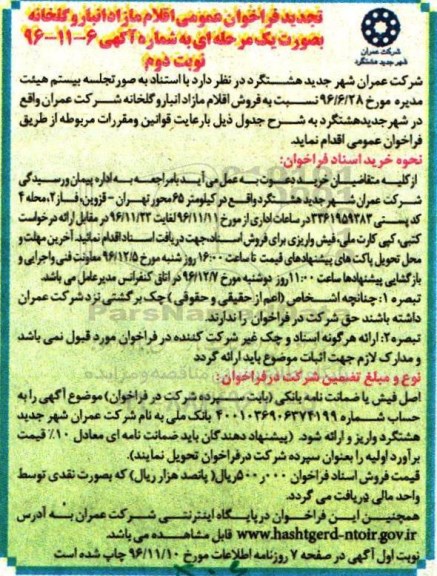 تجدید فراخوان عمومی اقلام مازاد انبار و گلخانه
بصورت یک مرحله ای به شماره آگهی ۶-۱۱-۹۶
نوبت دوم
شرکت عمران
شهر جدید هشتگرد
شرکت عمران شهر جدید هشتگرد در نظر دارد با استناد به صورتجلسه بیستم هیئت
مدیره مورخ ۹۶/۶/۲۸ نسبت به فروش اقلام مازاد انبار و گلخانه شرکت عمران واقع
در شهر جدید هشتگرد به شرح جدول ذیل با رعایت قوانین و مقررات مربوطه از طریق
فراخوان عمومی اقدام نماید.
نحوه خرید اسناد فراخوان:
از کلیه متقاضیان خرید دعوت به عمل می آید با مراجعه به اداره پیمان و رسیدگی
شرکت عمران شهر جدید هشتگرد واقع در کیلومتر ۶۵ محور تهران - قزوین، فاز ۲، محله ۴
کد پستی ۳۳۶۱۹۵۹۳۸۳ در ساعات اداری از مورخ ۹۶/۱۱/۱۱ لغایت ۹۶/۱۱/۲۳ در مقابل ارائه درخواست
کتبی، کپی کارت ملی، فیش واریزی برای فروش اسناد، جهت دریافت اسناد اقدام نمائید. آخرین مهلت و
محل تحویل پاکت های پیشنهادهای قیمت تا ساعت ۱۶:۰۰ روز شنبه مورخ ۹۶/۱۲/۵ معاونت فنی و اجرایی و
بازگشایی پیشنهادها ساعت ۱۱:۰۰ روز دوشنبه مورخ ۹۶/۱۲/۷ در اتاق کنفرانس مدیر عامل می باشد.
تبصره ۱: چنانچه اشخاص (اعم از حقیقی و حقوقی) چک برگشتی نزد شرکت عمران
داشته باشند حق شرکت در فراخوان را ندارند.
تبصره ۲: ارائه هرگونه اسناد و چک غیر شرکت کننده در فراخوان مورد قبول نمی باشد
و مدارک لازم جهت اثبات موضوع باید ارائه گردد
نوع و مبلغ تضمین شرکت در فراخوان:
اصل فیش یا ضمانت نامه بانکی (بابت سپرده شرکت در فراخوان) موضوع آگهی را به
حساب شماره ۴۰۰۱۰۳۶۹۰۶۳۷۴۱۹۹ بانک ملی به نام شرکت عمران شهر جدید
هشتگرد واریز و ارائه شود. (پیشنهاد دهندگان باید ضمانت نامه ای معادل ۱۰٪ قیمت
برآورد اولیه را بعنوان سپرده شرکت در فراخوان تحویل نمایند).
قیمت فروش اسناد فراخوان ۵۰۰٫۰۰۰ ریال (پانصد هزار ریال) که بصورت نقدی توسط
واحد مالی دریافت می گردد.
همچنین این فراخوان در پایگاه اینترنتی شرکت عمران به آدرس
www.hashtgerd-ntoir.gov.ir قابل مشاهده می باشد.
نوبت اول آگهی در صفحه ۷ روزنامه اطلاعات مورخ ۹۶/۱۱/۱۰ چاپ شده است